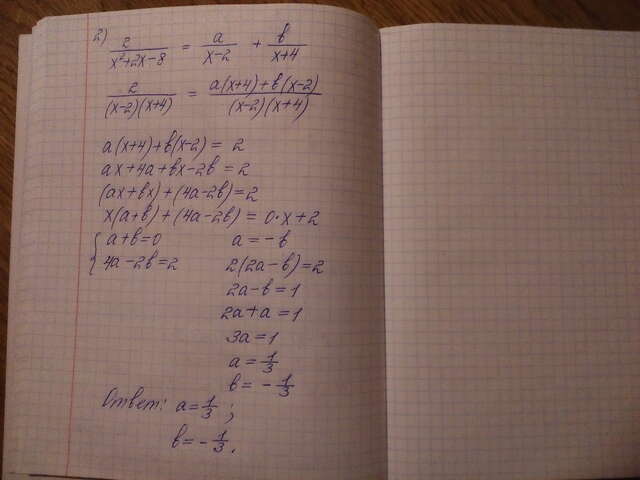 2) 2/(x²+2x-8) = a/(x-2) + b/(x+4)
2/((x-2)(x+4)) = (a(x+4)+b(x-2))/((x-2)(x+4))
a(x+4)+b(x-2) = 2
ax+4a+bx-2b = 2
(ax+bx)+(4a-2b)=2
x(a+b)+(4a-2b) = 0·x+2
{ a+b=0 a=-b
4a-2b=2 2(2a-b)=2
2a-b=1
2a+a=1
3a=1
a=1/3
b=-1/3
Ответ: a=1/3 ;
b=-1/3.